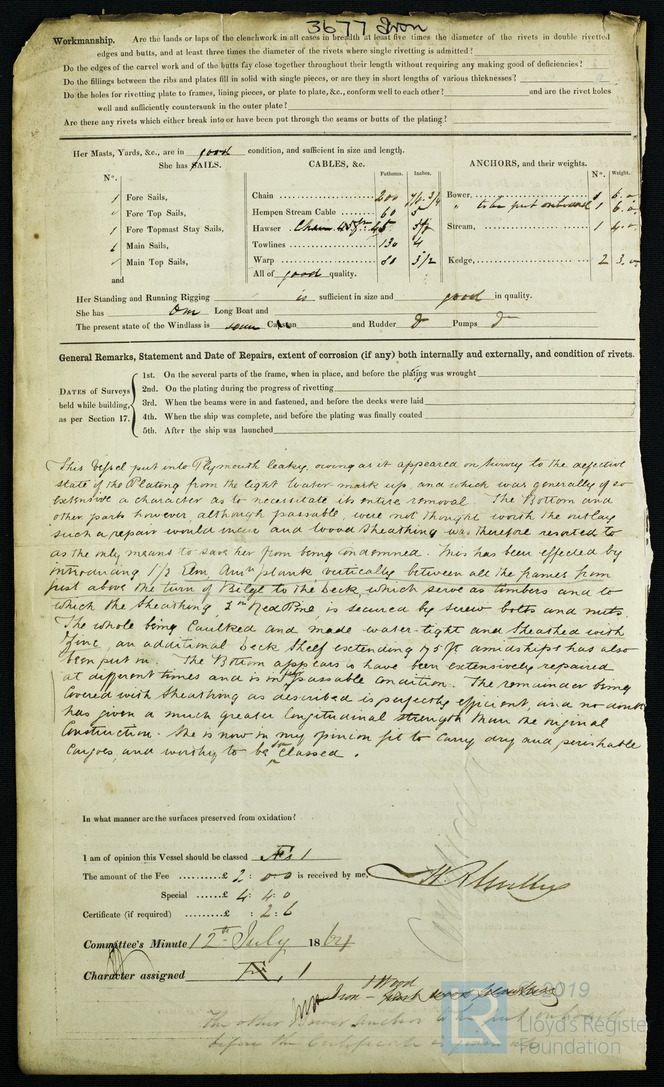 3677 Iron
Workmanship. Are the lands or laps of the clenchwork in all cases in breadth at least five times the diameter of the rivets in double rivetted
edges and butts, and at least three times the diameter of the rivets where single rivetting is admitted?
Do the edges of the carvel work and of the butts fay close together throughout their length without requiring any making good of deficiencies?
Do the fillings between the ribs and plates fill in solid with single pieces, or are they in short lengths of various thicknesses?
Do the holes for rivetting plate to frames, lining pieces, or plate to plate, &c., conform well to each other? and are the rivet holes
well and sufficiently countersunk in the outer plate?
Are there any rivets which either break into or have been put through the seams or butts of the plating?
Her Masts, Yards, &c., are in good condition, and sufficient in size and length.
She has SAILS. CABLES, &c. ANCHORS, and their weights.
N°. Fathoms. Inches. N°. Weight.
1 Fore Sails, Chain 200 Bower, 1 6.
Fore Top Sails, Hempen Stream Cable 60 5 " to be put onboard 1 6.
1 Fore Topmast Stay Sails, Hawser Stream, 1 4.
Main Sails, Towlines 130 4
Main Top Sails, Warp 80 3 1/2 Kedge, 2 3.
and All of good quality.
Her Standing and Running Rigging is sufficient in size and good in quality.
She has One Long Boat and
The present state of the Windlass is Capstan and Rudder Pumps
General Remarks, Statement and Date of Repairs, extent of corrosion (if any) both internally and externally, and condition of rivets.
DATES of Surveys held while building, as per Section 17.
1st. On the several parts of the frame, when in place, and before the plating was wrought
2nd. On the plating during the progress of rivetting
3rd. When the beams were in and fastened, and before the decks were laid
4th. When the ship was complete, and before the plating was finally coated
5th. After the ship was launched
This Vessel put into Plymouth leaky, owing as it appeared on Survey to the defective
state of the Plating from the light water mark up, and which was generally of so
extensive a character as to necessitate its entire removal. The Bottom and
other parts however, although passable, were not thought worth the outlay
such a repair would incur and Wood Sheathing was therefore resorted to
as the only means to save her from being condemned. This has been effected by
introducing Elm, plank vertically between all the frames from
just above the turn of Bilge to the deck, which serve as timbers and to
which the Sheathing, 2 in Red Pine, is secured by screw bolts and nuts.
The whole being Caulked and made water-tight and Sheathed with
Zinc, an additional Deck Shelf extending 75 ft amidships has also
been put in. The Bottom appears to have been extensively repaired
at different times and is in passable condition. The remainder being
covered with Sheathing as described is perfectly efficient, and no doubt
has given a much greater longitudinal strength than the original
Construction. She is now in my opinion fit to carry dry and perishable
Cargoes, and worthy to be classed.
In what manner are the surfaces preserved from oxidation?
I am of opinion this Vessel should be classed 1
The amount of the Fee £ 2 : 0 0 is received by me,
Special £ 4 : 4 : 0
Certificate (if required) £ : 2 : 6
Committee's Minute 12th July 1864
Character assigned 1
Iron
The other Bower Anchor to be put onboard
before the Certificate is
2019
LR
Lloyd's Register
Foundation